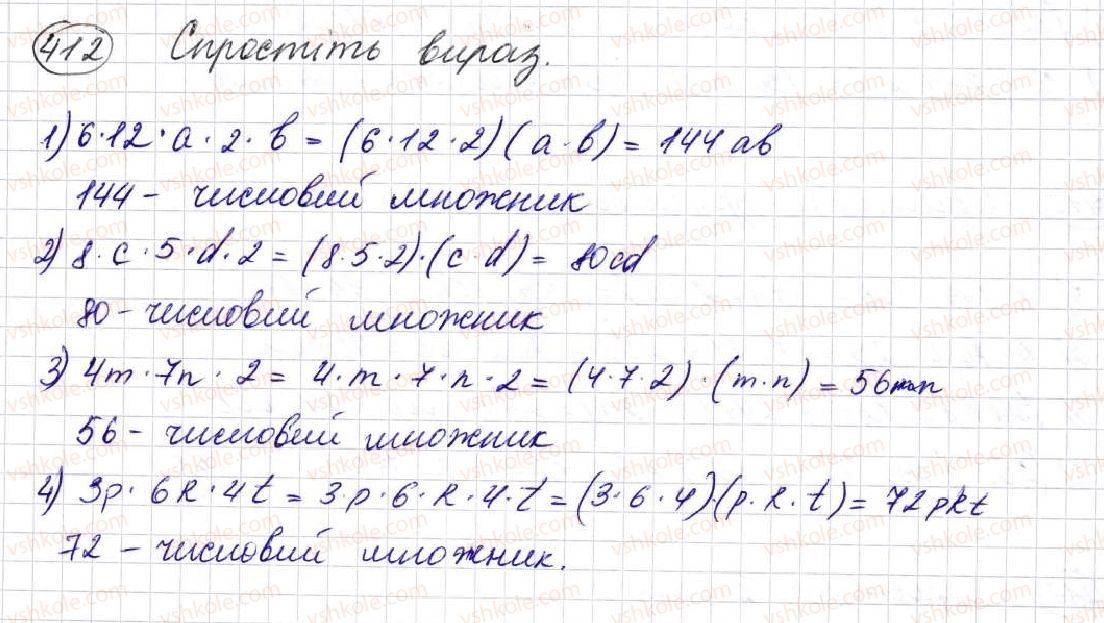 412 Спростіть вираз.
1) 6·12·a·2·b = (6·12·2)(a·b) = 144ab
144 – числовий множник
2) 8·c·5·d·2 = (8·5·2)·(c·d) = 80cd
80 – числовий множник
3) 4m·7n·2 = 4·m·7·n·2 = (4·7·2)·(m·n) = 56mn
56 – числовий множник
4) 3p·6k·4t = 3·p·6·k·4·t = (3·6·4)·(p·k·t) = 72pkt
72 – числовий множник.